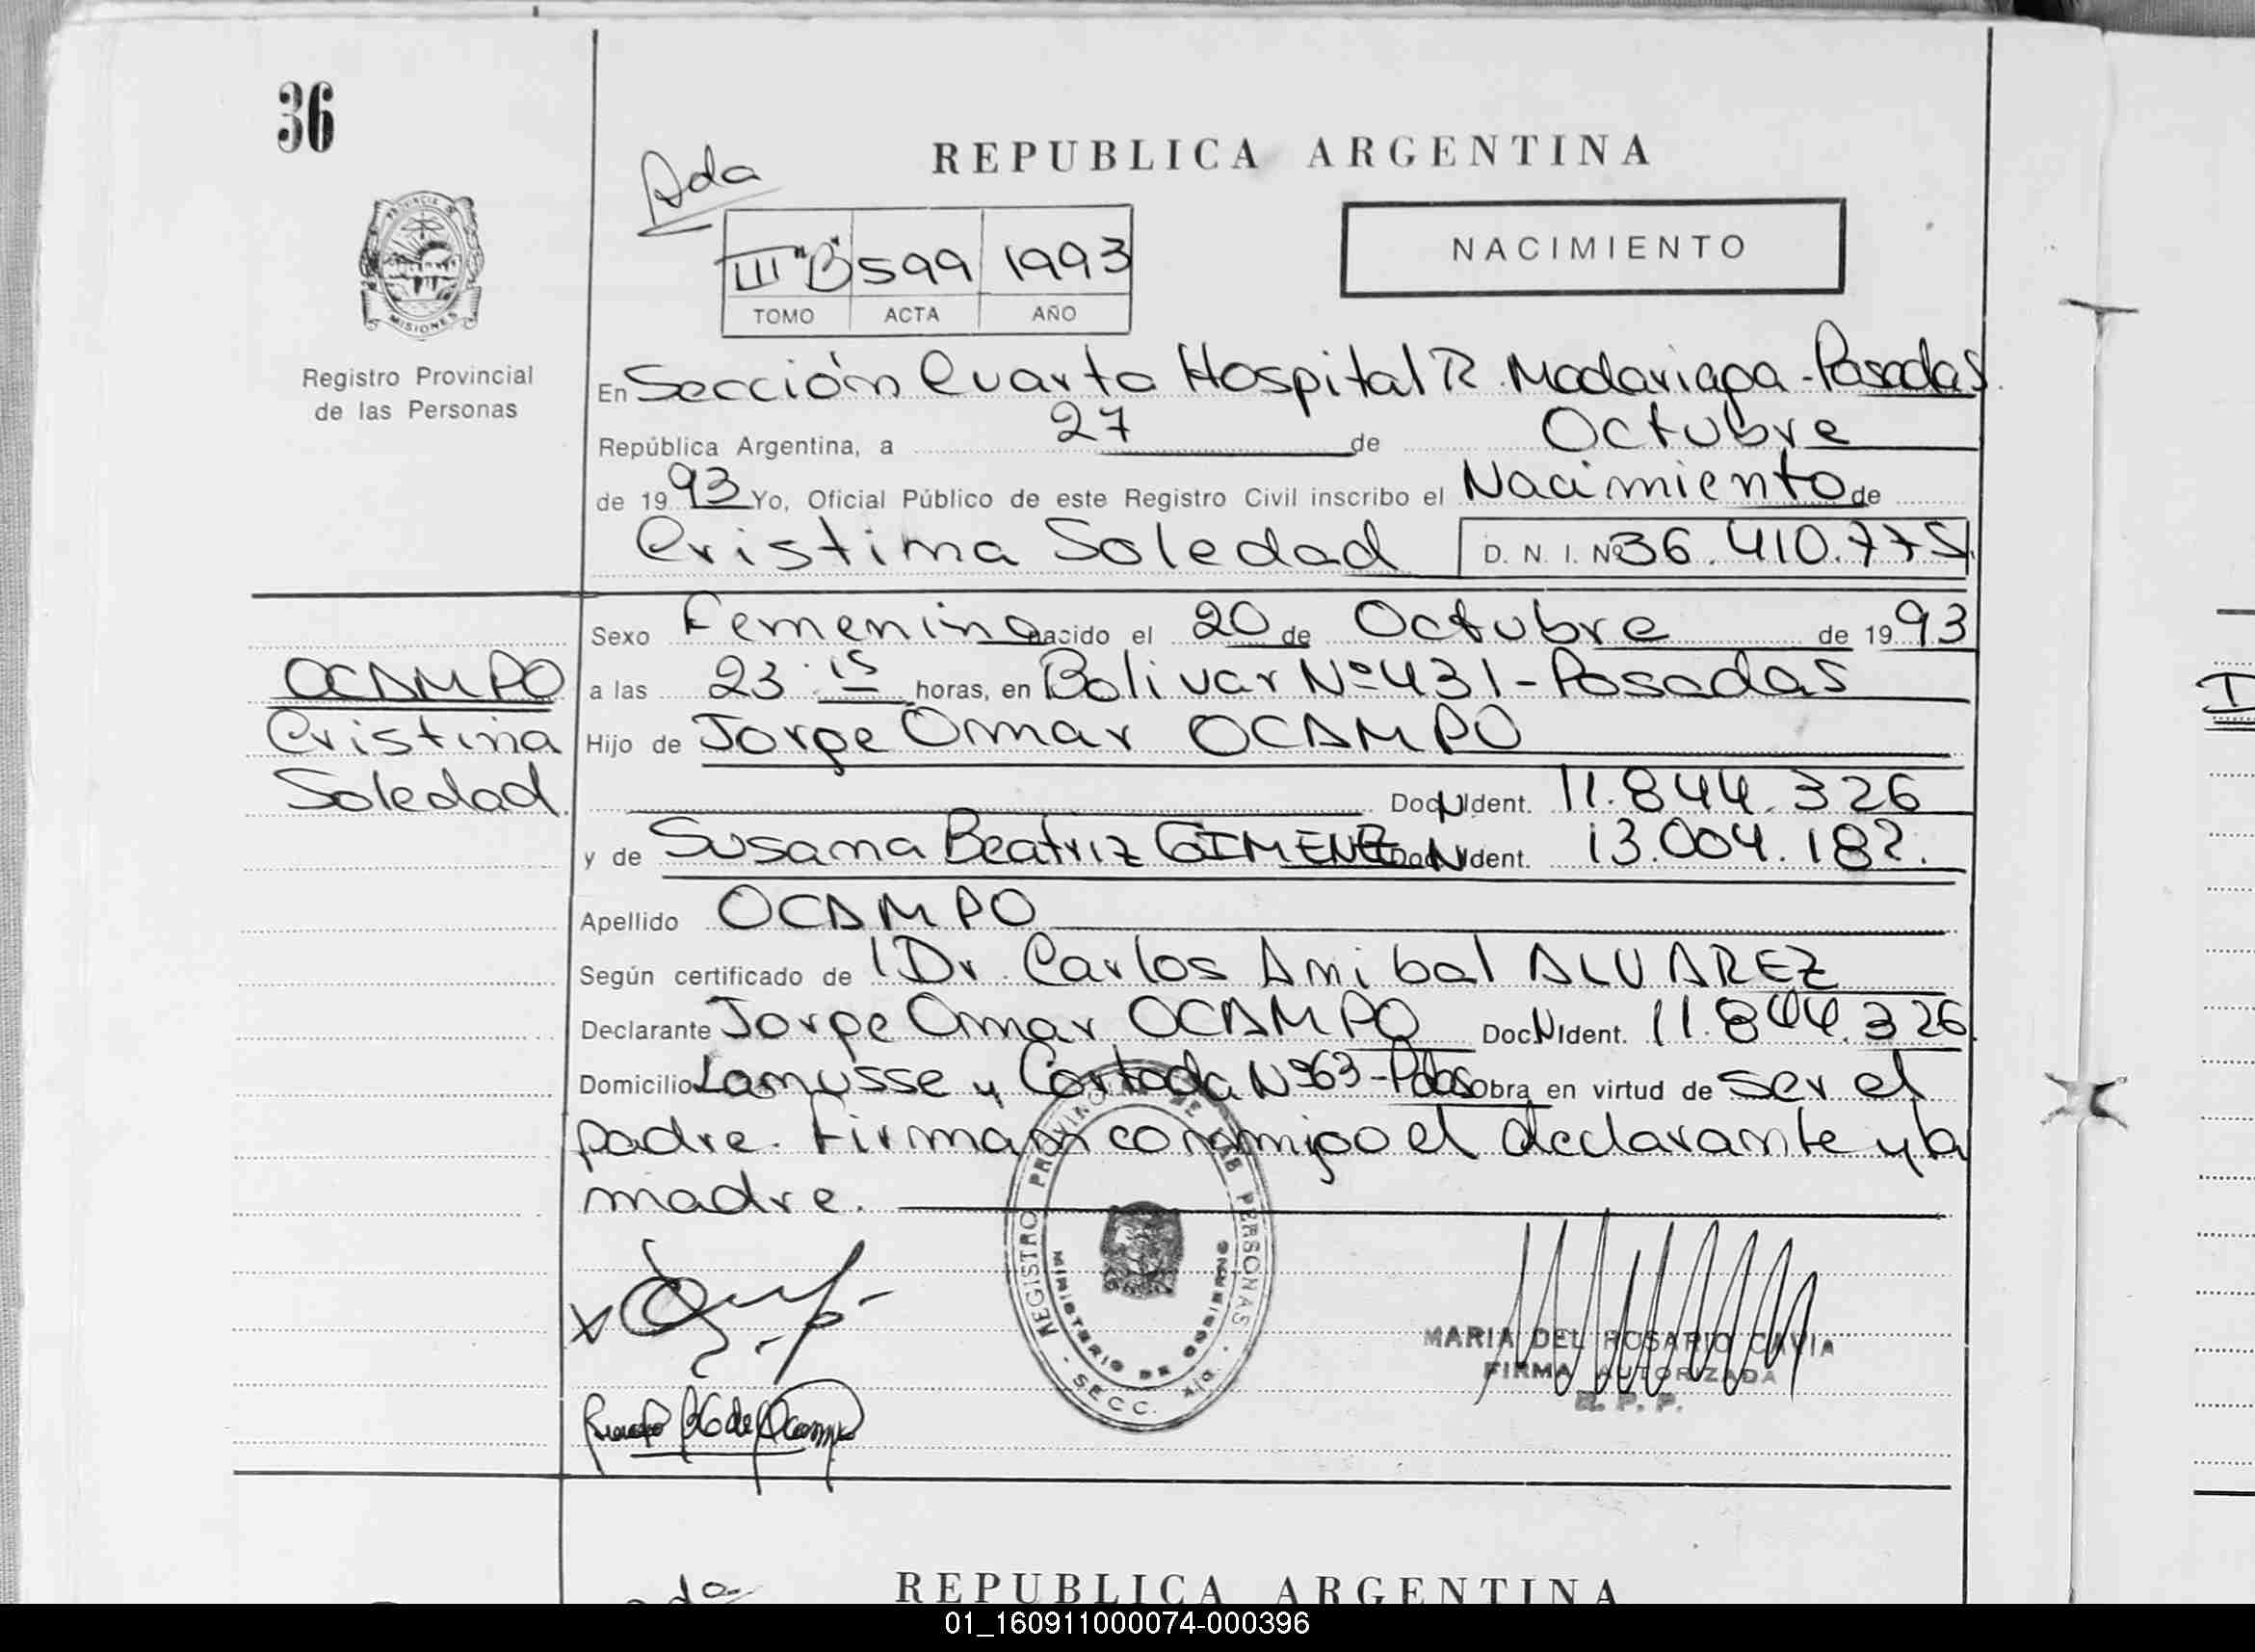 36
Ada
REPUBLICA ARGENTINA
III "B" 599 1993
TOMO ACTA AÑO
NACIMIENTO
PROVINCIA DE
MISIONES
Registro Provincial
de las Personas
En Sección Cuarta Hospital R. Madariaga - Posadas.
República Argentina, a 27 de Octubre
de 1993 Yo, Oficial Público de este Registro Civil inscribo el Nacimiento de
Cristina Soledad D. N. I. Nº 36.410.775
OCAMPO
Cristina
Soledad.
Sexo Femenino nacido el 20 de Octubre de 1993
a las 23.15 horas, en Bolivar Nº 431 - Posadas
Hijo de Jorge Omar OCAMPO
Doc.N.Ident. 11.844.326
y de Susana Beatriz GIMENEZ Doc.N.Ident. 13.004.182.
Apellido OCAMPO
Según certificado de Dr. Carlos Anibal ALVAREZ
Declarante Jorge Omar OCAMPO Doc.N.Ident. 11.844.326
Domicilio Lamusse y Cortada Nº 63 - Pdas obra en virtud de ser el
padre. Firman conmigo el declarante y la
madre.
REGISTRO PROVINCIAL DE LAS PERSONAS
MINISTERIO DE GOBIERNO
SECC. 4ta.
MARIA DEL ROSARIO CAVIA
FIRMA AUTORIZADA
R. P. P.
REPUBLICA ARGENTINA
01_160911000074-000396